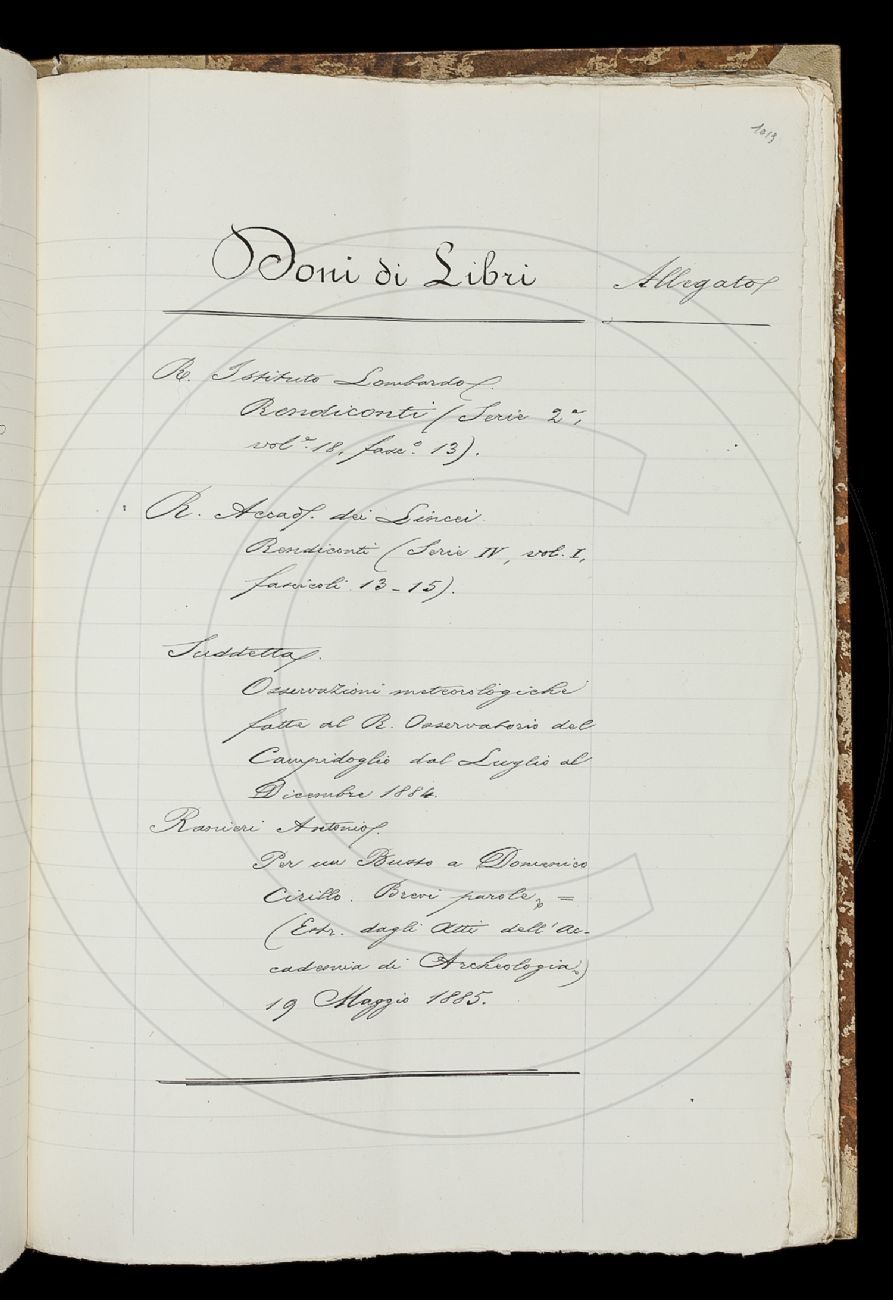 1013
Doni di Libri
Allegato
R. Istituto Lombardo.
Rendiconti (Serie 2ª,
vol.e 18, fasc.o 13).
R. Accad. dei Lincei.
Rendiconti (Serie IV, vol. I,
fascicoli 13-15).
Suddetta.
Osservazioni meteorologiche
fatte al R. Osservatorio del
Campidoglio dal Luglio al
Dicembre 1884.
Ranieri Antonio.
Per un Busto a Domenico
Cirillo. Brevi parole, =
(Estr. dagli Atti dell'Ac-
cademia di Archeologia)
19 Maggio 1885.